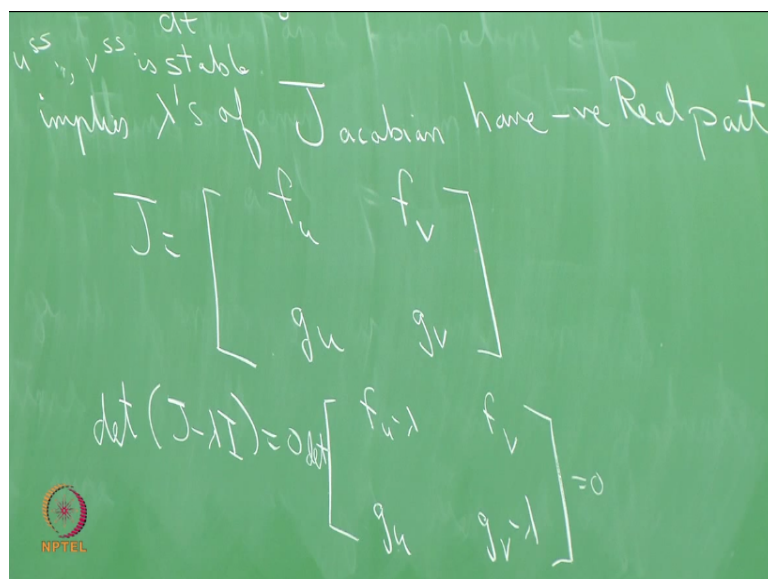 dt
u^ss, v^ss is stable.
implies λ's of Jacobian have -ve Real part
J = [ f_u f_v
g_u g_v ]
det (J-λI) = 0 det [ f_u-λ f_v
g_u g_v-λ ] = 0
NPTEL